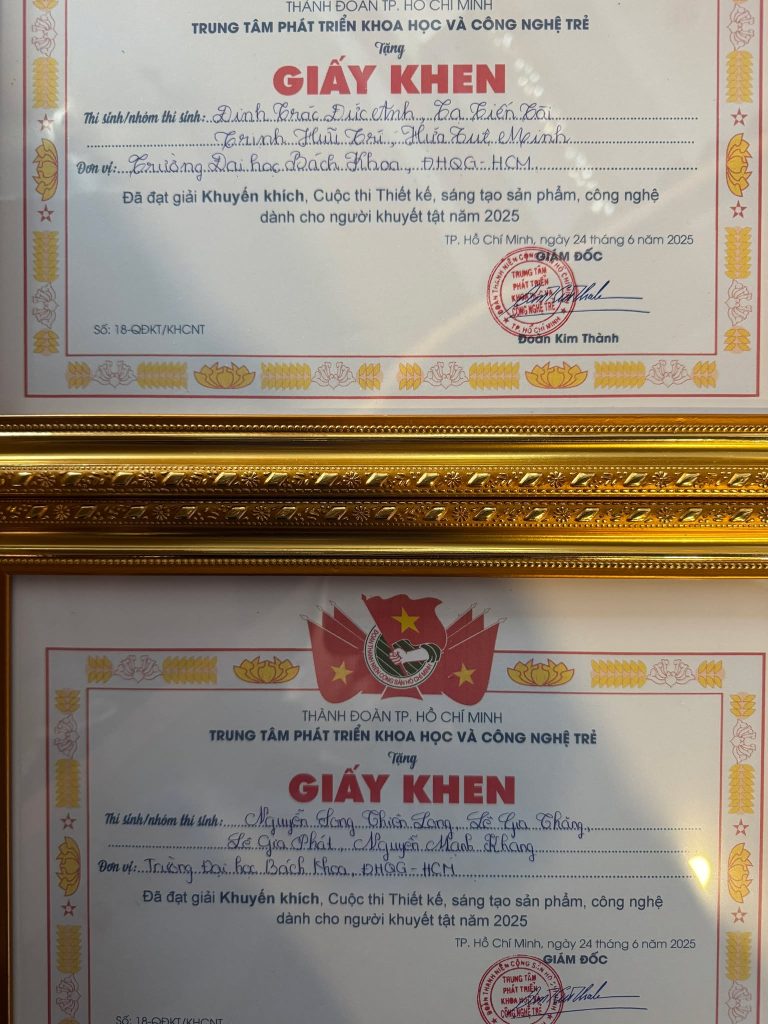 THÀNH ĐOÀN TP. HỒ CHÍ MINH
TRUNG TÂM PHÁT TRIỂN KHOA HỌC VÀ CÔNG NGHỆ TRẺ
Tặng
GIẤY KHEN
Thí sinh/nhóm thí sinh: Đinh Trác Đức Anh, Tạ Tiến Tài
Trịnh Hữu Trí, Hứa Tuệ Minh
Đơn vị: Trường Đại học Bách Khoa, ĐHQG-HCM
Đã đạt giải Khuyến khích, Cuộc thi Thiết kế, sáng tạo sản phẩm, công nghệ
dành cho người khuyết tật năm 2025
TP. Hồ Chí Minh, ngày 24 tháng 6 năm 2025
GIÁM ĐỐC
TRUNG TÂM
PHÁT TRIỂN
KHOA HỌC VÀ
CÔNG NGHỆ TRẺ
TP. HỒ CHÍ MINH
Đoàn Kim Thành
Số: 18-QĐKT/KHCNT
ĐOÀN THANH NIÊN CỘNG SẢN HỒ CHÍ MINH
THÀNH ĐOÀN TP. HỒ CHÍ MINH
TRUNG TÂM PHÁT TRIỂN KHOA HỌC VÀ CÔNG NGHỆ TRẺ
Tặng
GIẤY KHEN
Thí sinh/nhóm thí sinh: Nguyễn Song Thiên Long, Lê Gia Thắng,
Lê Gia Phát, Nguyễn Mạnh Khang
Đơn vị: Trường Đại học Bách Khoa, ĐHQG-HCM
Đã đạt giải Khuyến khích, Cuộc thi Thiết kế, sáng tạo sản phẩm, công nghệ
dành cho người khuyết tật năm 2025
TP. Hồ Chí Minh, ngày 24 tháng 6 năm 2025
GIÁM ĐỐC
TRUNG TÂM
PHÁT TRIỂN
KHOA HỌC VÀ
CÔNG NGHỆ TRẺ
Số: 18-QĐKT/KHCNT